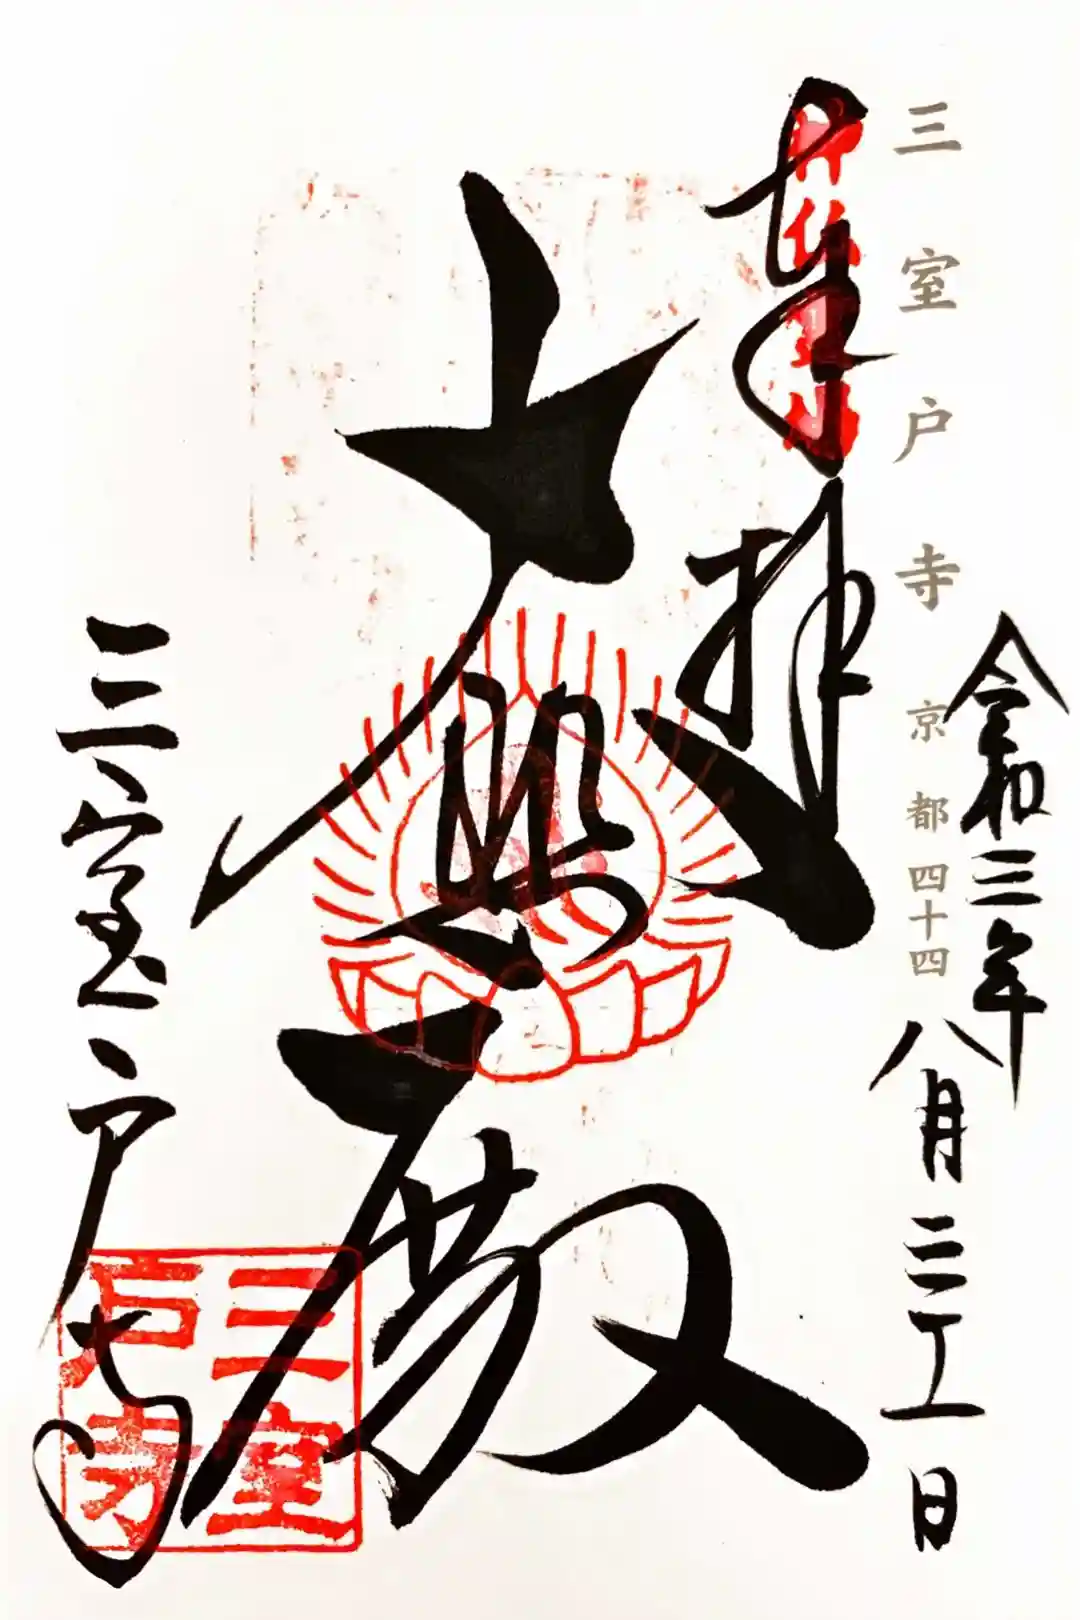 三室戸寺 京都四十四
令和三年
八月三十一日
奉拝
大悲殿
三室戸寺
三室
戸寺